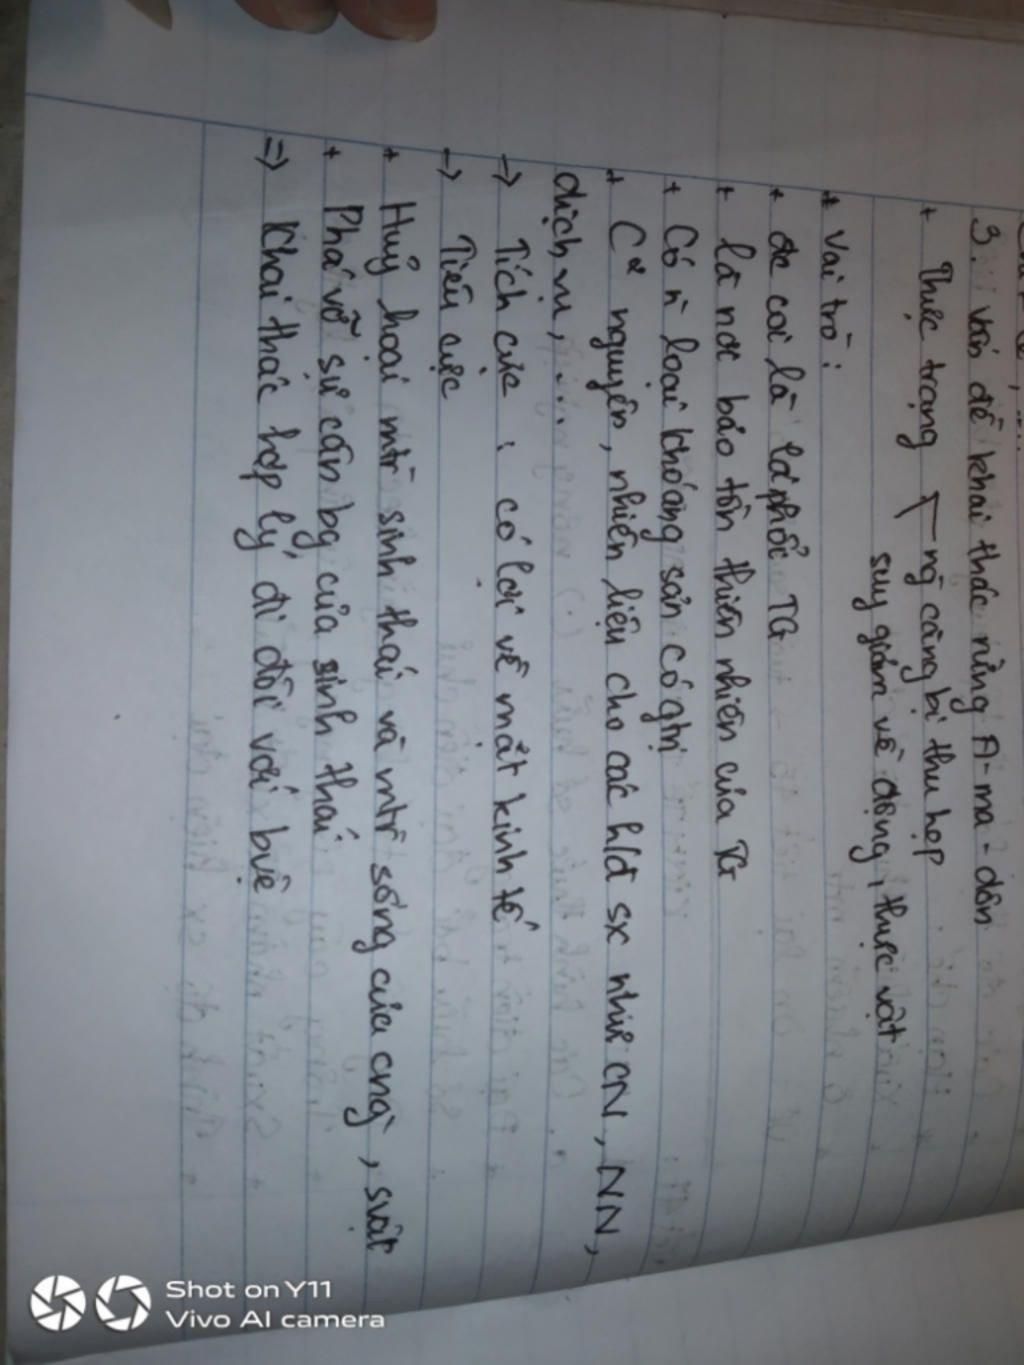 3. Vấn đề khai thác rừng A-ma-dôn
+ Thực trạng - ng̀ càng bị thu hẹp
suy giảm về động, thực vật
+ Vai trò:
+ đc coi là lá phổi TG
+ là nơi bảo tồn thiên nhiên của TG
+ Có n̄ loại khoáng sản có ghị
+ C² nguyên, nhiên liệu cho các hlđ sx như CN, NN,
dịch vụ,...
→ Tích cực: có lợi về mặt kinh tế
→ Tiêu cực
+ Huỷ hoại mtr̀ sinh thái và mtr̀ sống của cng̀, svật
+ Phá vỡ sự cân bg của sinh thái
=> Khai thác hợp lý đi đôi với bvệ
Shot on Y11
Vivo AI camera